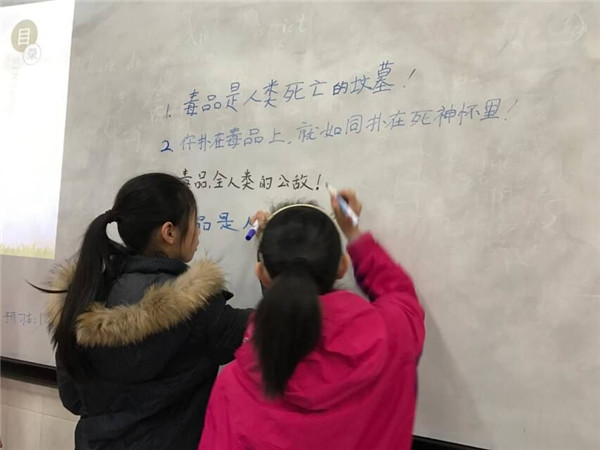 目录
1. 毒品是人类死亡的坟墓！
2. 你扑在毒品上，就如同扑在死神怀里！
毒品,全人类的公敌！
品是人